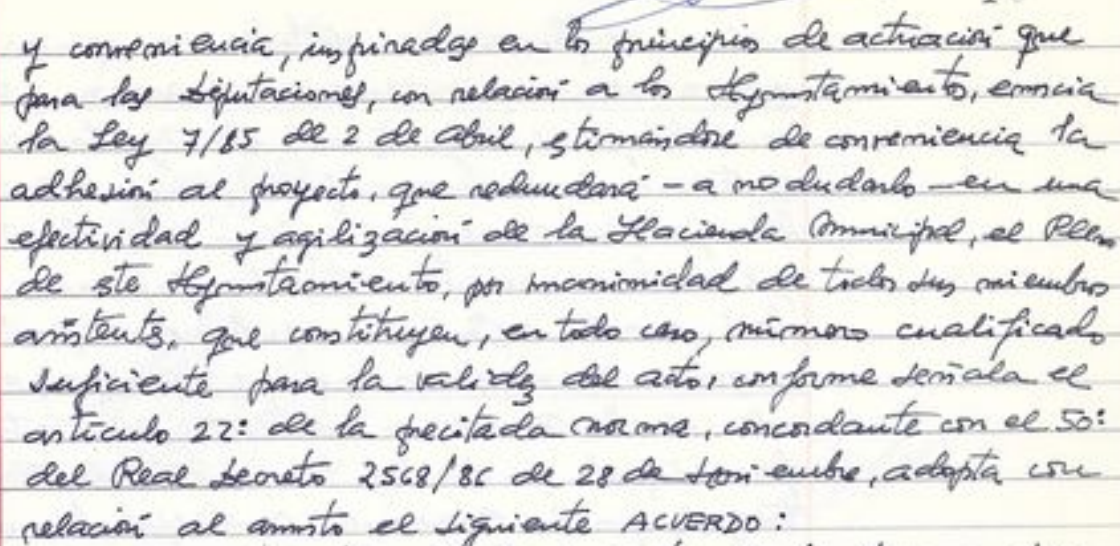 y conveniencia, inspiradas en los principios de actuación que
para las Diputaciones, con relación a los Ayuntamiento, enuncia
la Ley 7/85 de 2 de Abril, estimándose de conveniencia la
adhesión al proyecto, que redundará - a no dudarlo - en una
efectividad y agilización de la Hacienda Municipal, el Pleno
de este Ayuntamiento, por unanimidad de todos sus miembros
asistentes, que constituyen, en todo caso, número cualificado
suficiente para la validez del acto, conforme señala el
artículo 22: de la precitada norma, concordante con el 50:
del Real Decreto 2568/86 de 28 de Noviembre, adopta con
relación al asunto el siguiente ACUERDO: